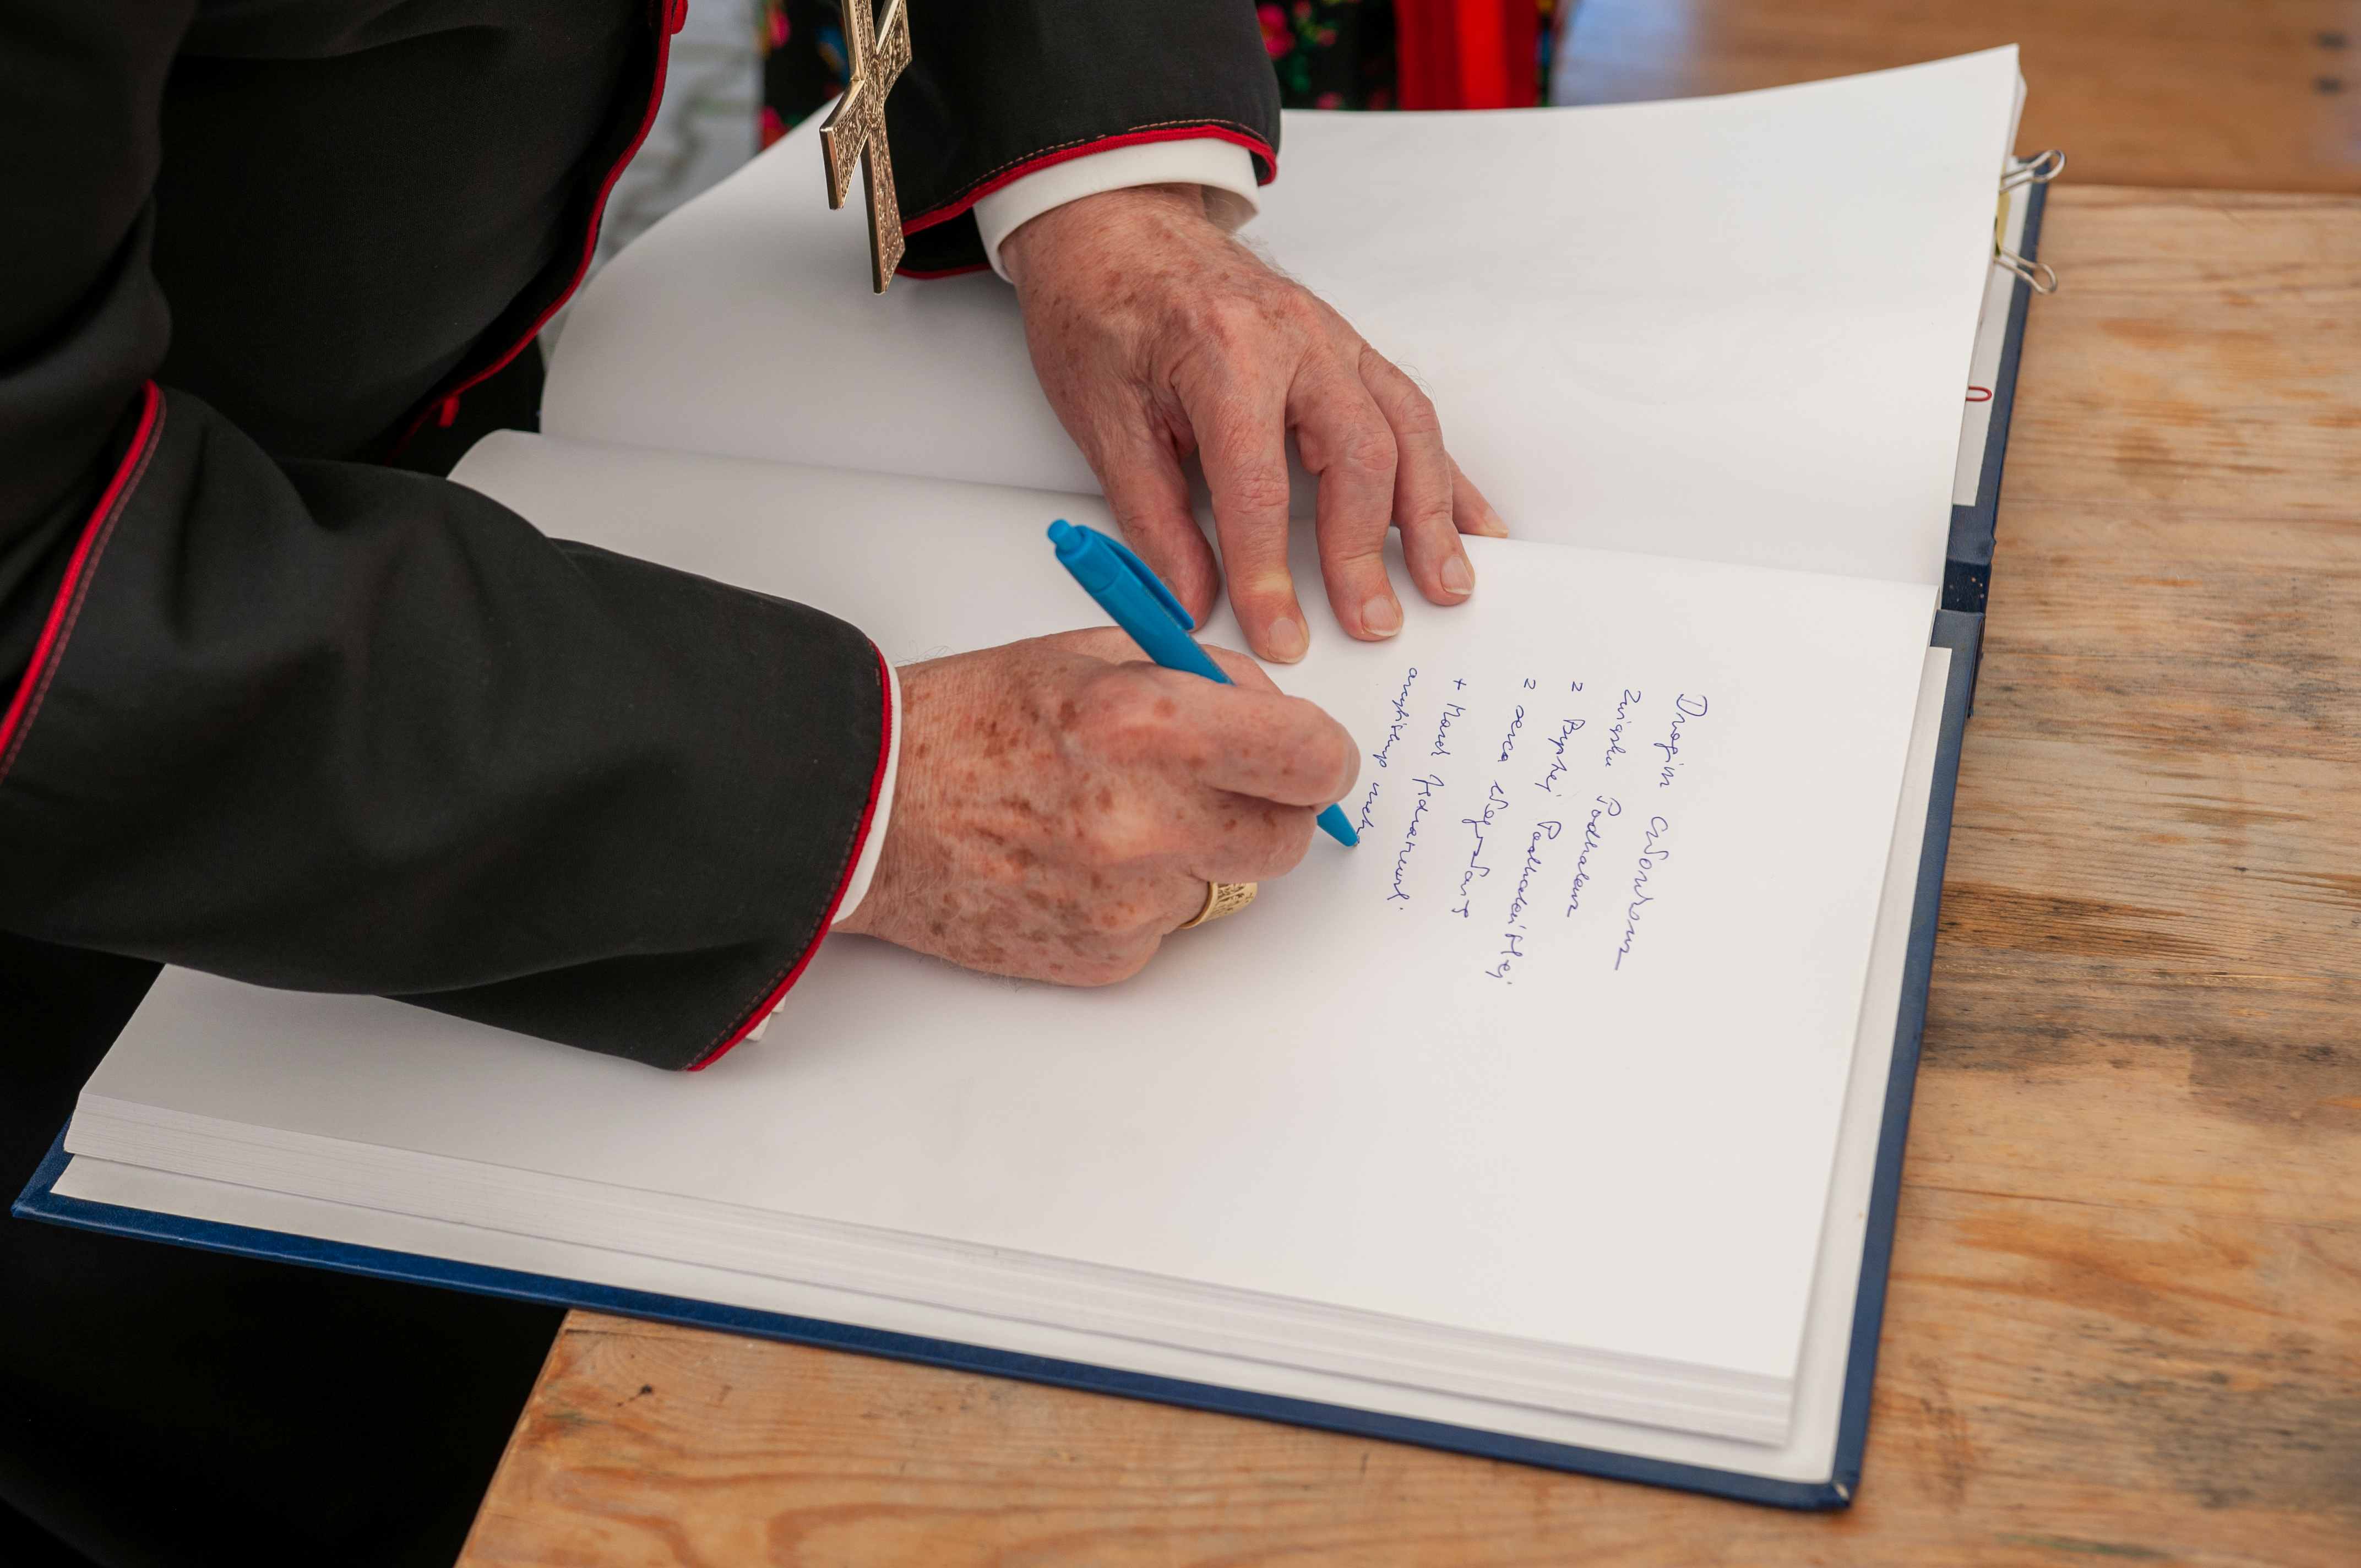 Drogim Członkom
Związku Podhalan
z Bystrej Podhalańskiej
z serca błogosławię
+ Marek Jędraszewski
arcybiskup metr